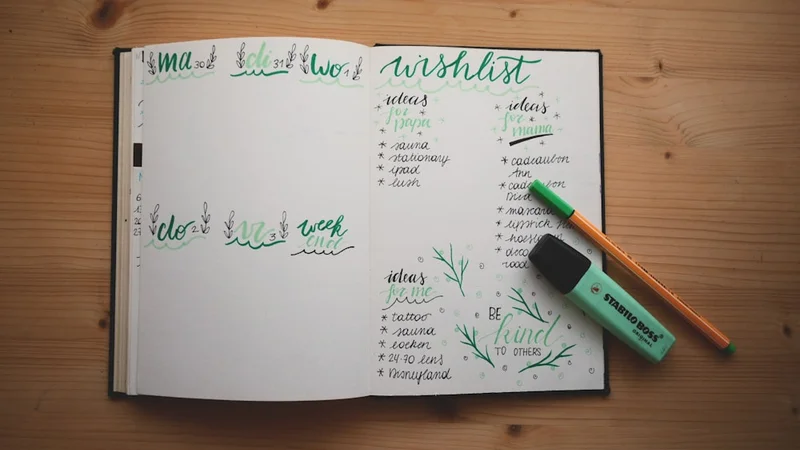 ma 30
di 31
wo 1
do 2
vr 3
week
end
wishlist
ideas
for
papa
* sauna
* stationary
* ipad
* lush
ideas
for
mama
* cadeaubon
Ann
* mascara
* lipstick
ideas
for me
* tattoo
* sauna
* boeken
* 24-70 lens
* Disneyland
BE
kind
TO OTHERS
STABILO BOSS
ORIGINAL